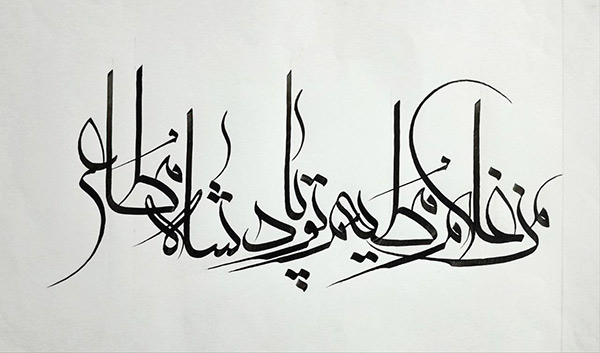 من غلام مطیعم تو پادشاه مطاعی